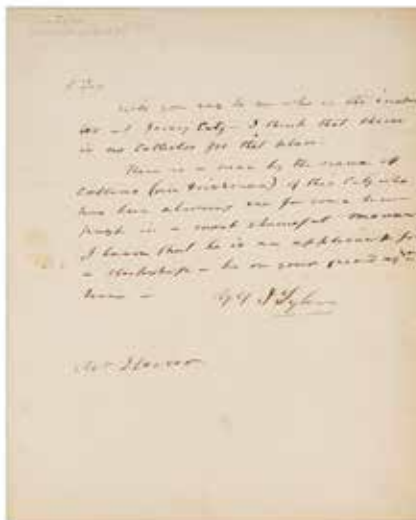 you say to me who is the
at Jersey City – I think that there
is no Collector for that place.
There is a man by the name of
Collins (an Irishman) of this City who
has been abusing me for some time
past in a most shameful manner
I learn that he is an applicant for
a Clerkship – be on your guard ag't
him –
J Tyler
Mr